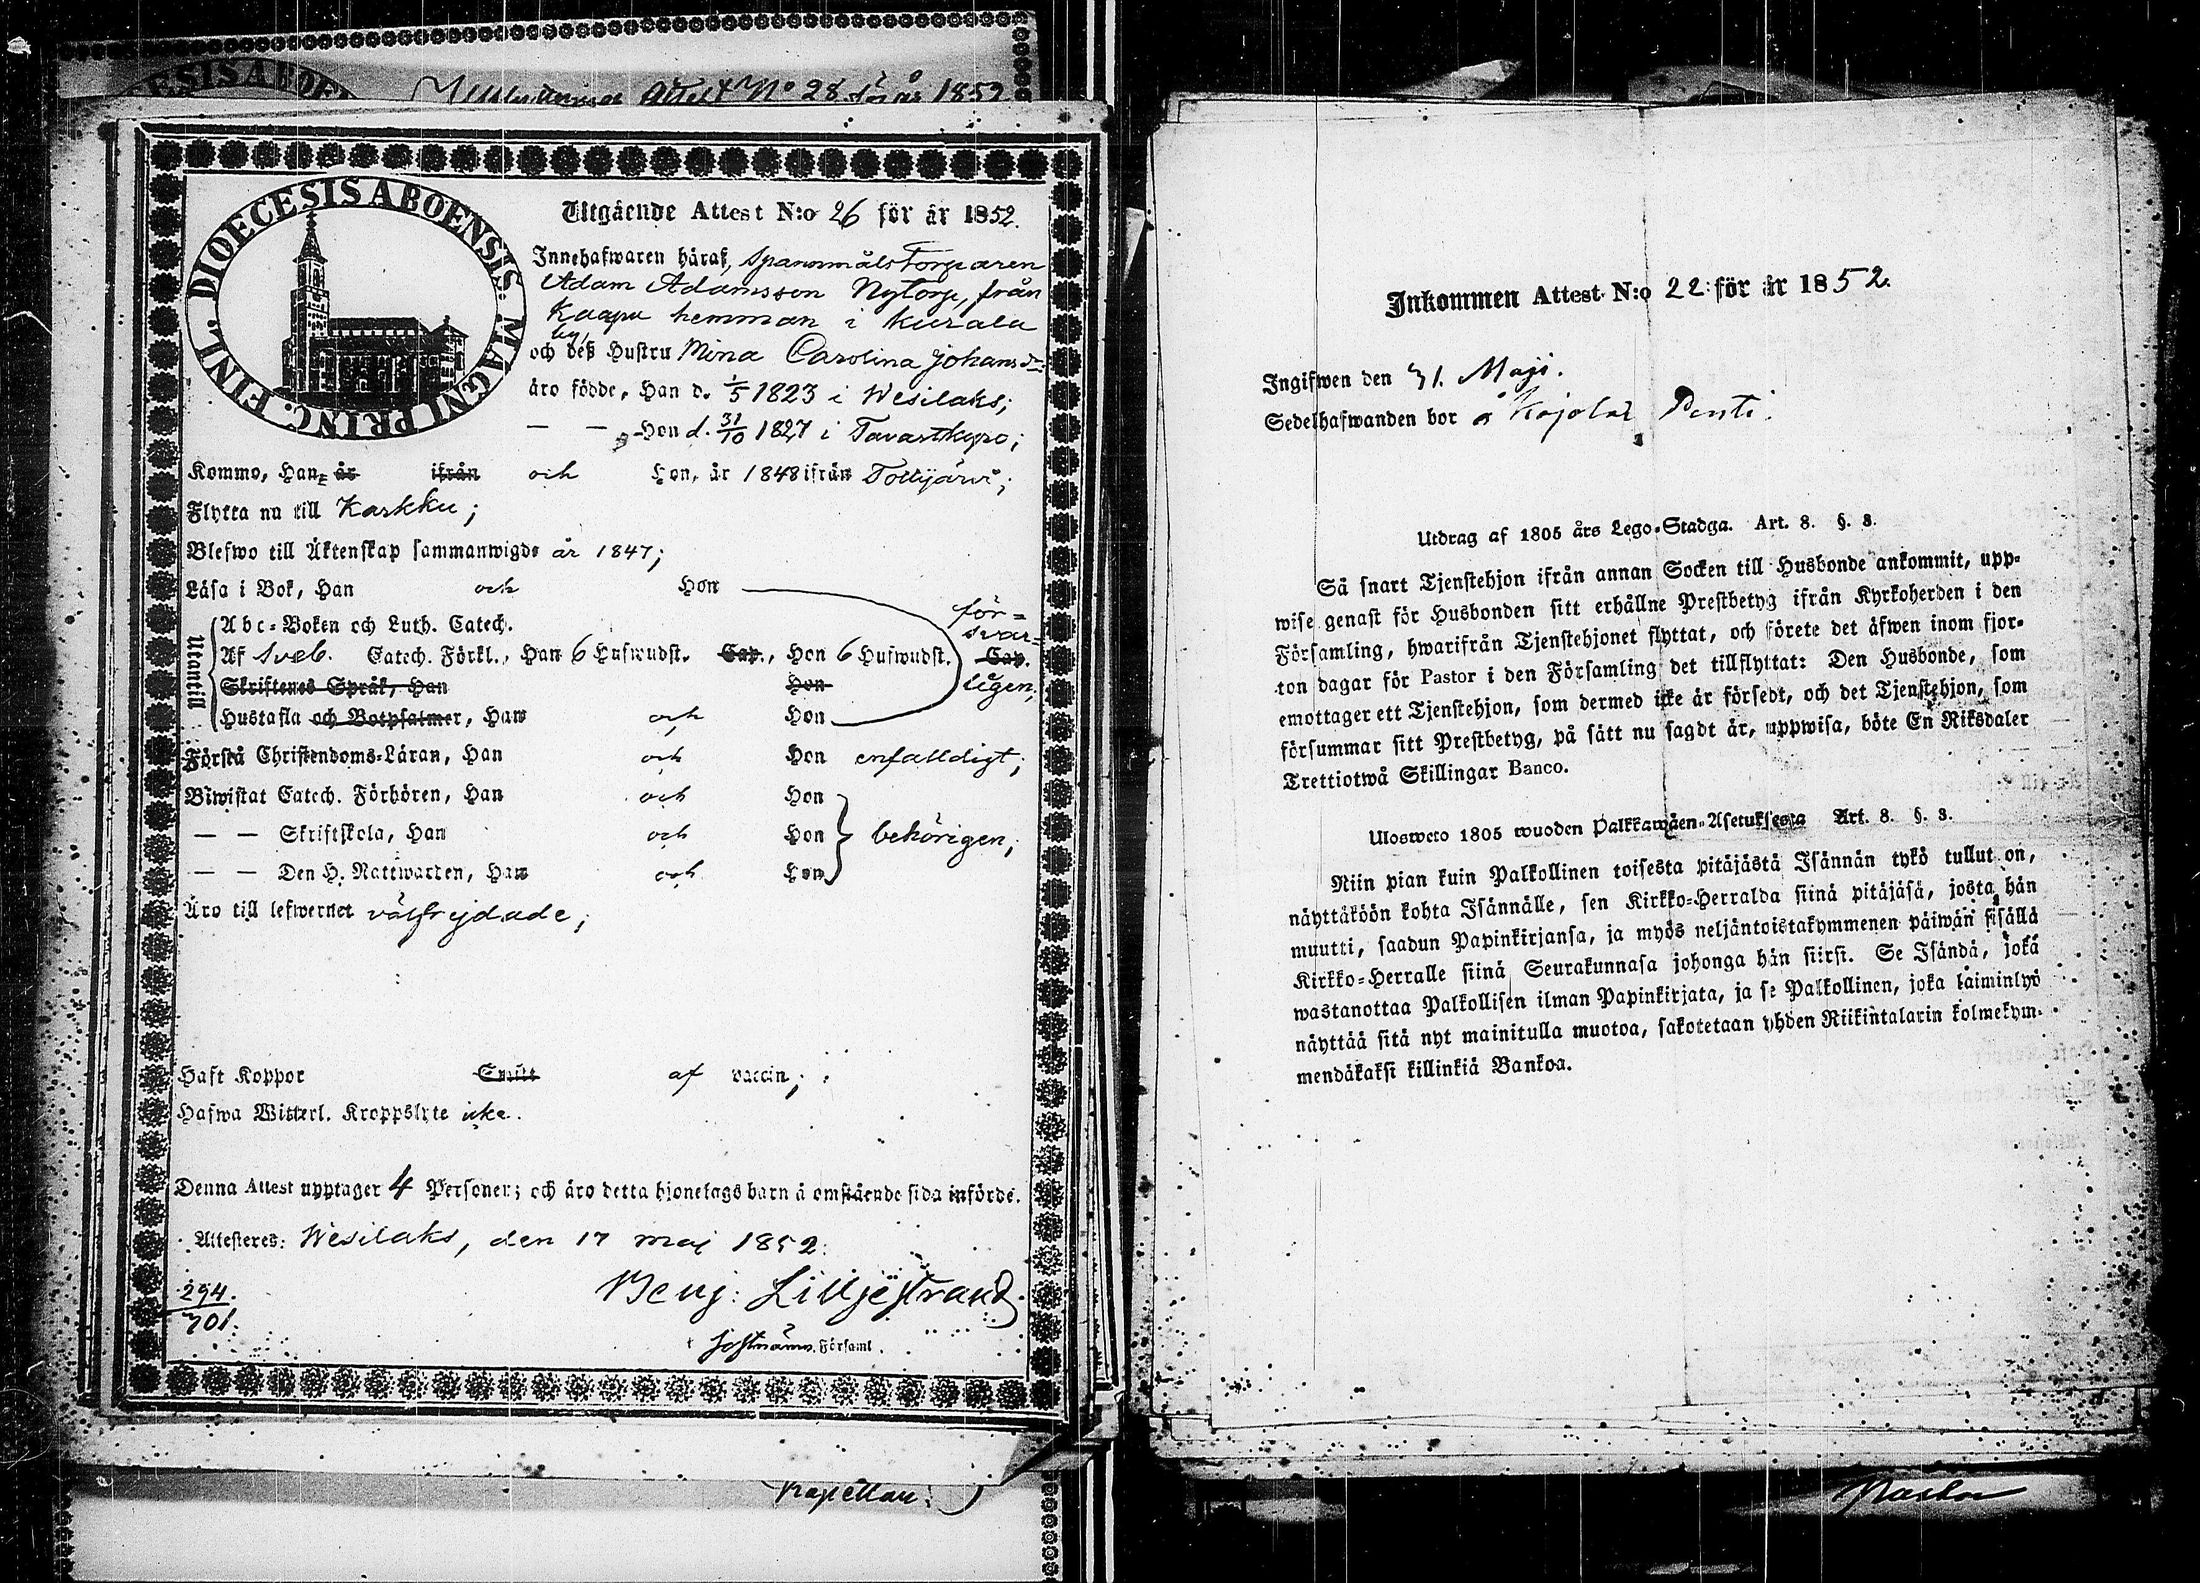 Attest No 28 för år 1852
DIOECESIS ABOENSIS. MAGNI PRINC. FINL.
Utgående Attest N:o 26 för år 1852.
Innehafwaren häraf, Spannmåls Torparen
Adam Adamsson Nytorp, från
Kaapu hemman i Kurala
by,
och deß Hustru Mina Carolina Johansdr.
äro födde, Han d. 1/5 1823 i Wesilaks;
— — Hon d. 31/10 1827 i Tavastkyro;
Kommo, Han, år ifrån och Hon, år 1848 ifrån Tottijärvi;
Flytta nu till Karkku;
Blefwo till Äktenskap sammanwigde år 1847;
Läsa i Bok, Han och Hon
för=
svar=
ligen;
Utantill
Abc=Boken och Luth. Catech.
Af Sveb. Catech. Förkl., Han 6 Hufwudst. Cap., Hon 6 Hufwudst. Cap.
Skriftenes Språk, Han Hon
Hustafla och Botpsalmer, Han och Hon
Förstå Christendoms=Läran, Han och Hon enfalldigt;
Biwistat Catech. Förhören, Han och Hon
— — Skriftskola, Han och Hon behörigen;
— — Den H. Nattwarden, Han och Hon
Äro till lefwernet välfrejdade;
Haft Koppor af vaccin;
Hafwa Witterl. Kroppslyte icke.
Denna Attest upptager 4 Personer; och äro detta hjonelags barn å omstående sida införde.
Attesteres: Wesilaks, den 17 maj 1852.
294.
701.
Benj: Lilljestrand
Församl.
Kapellan.
Inkommen Attest N:o 22 för år 1852.
Ingifwen den 31. Maji.
Sedelhafwanden bor å Kojola Penti.
Utdrag af 1805 års Lego=Stadga. Art. 8. §. 3.
Så snart Tjenstehjon ifrån annan Socken till Husbonde ankommit, upp=
wise genast för Husbonden sitt erhållne Prestbetyg ifrån Kyrkoherden i den
Församling, hwarifrån Tjenstehjonet flyttat, och förete det äfwen inom fjor=
ton dagar för Pastor i den Församling det tillflyttat: Den Husbonde, som
emottager ett Tjenstehjon, som dermed icke är försedt, och det Tjenstehjon, som
försummar sitt Prestbetyg, på sätt nu sagdt är, uppwisa, böte En Riksdaler
Trettiotwå Skillingar Banco.
Uloswето 1805 wuoden Palkkawäen=Asetuksesta Art. 8. §. 3.
Niin pian kuin Palkollinen toisesta pitäjästä Isännän tykö tullut on,
näyttäköön kohta Isännälle, sen Kirkko=Herralda siinä pitäjäsä, josta hän
muutti, saadun Papinkirjansa, ja myös neljäntoistakymmenen päiwän sisällä
Kirkko=Herralle siinä Seurakunnasa johonga hän siirsi. Se Isändä, joka
wastanottaa Palkollisen ilman Papinkirjata, ja se Palkollinen, joka laiminlyö
näyttää sitä nyt mainitulla muotoa, sakotetaan yhden Riikintalarin kolmekym=
mendäkaksi killinkiä Bankoa.
Pastor